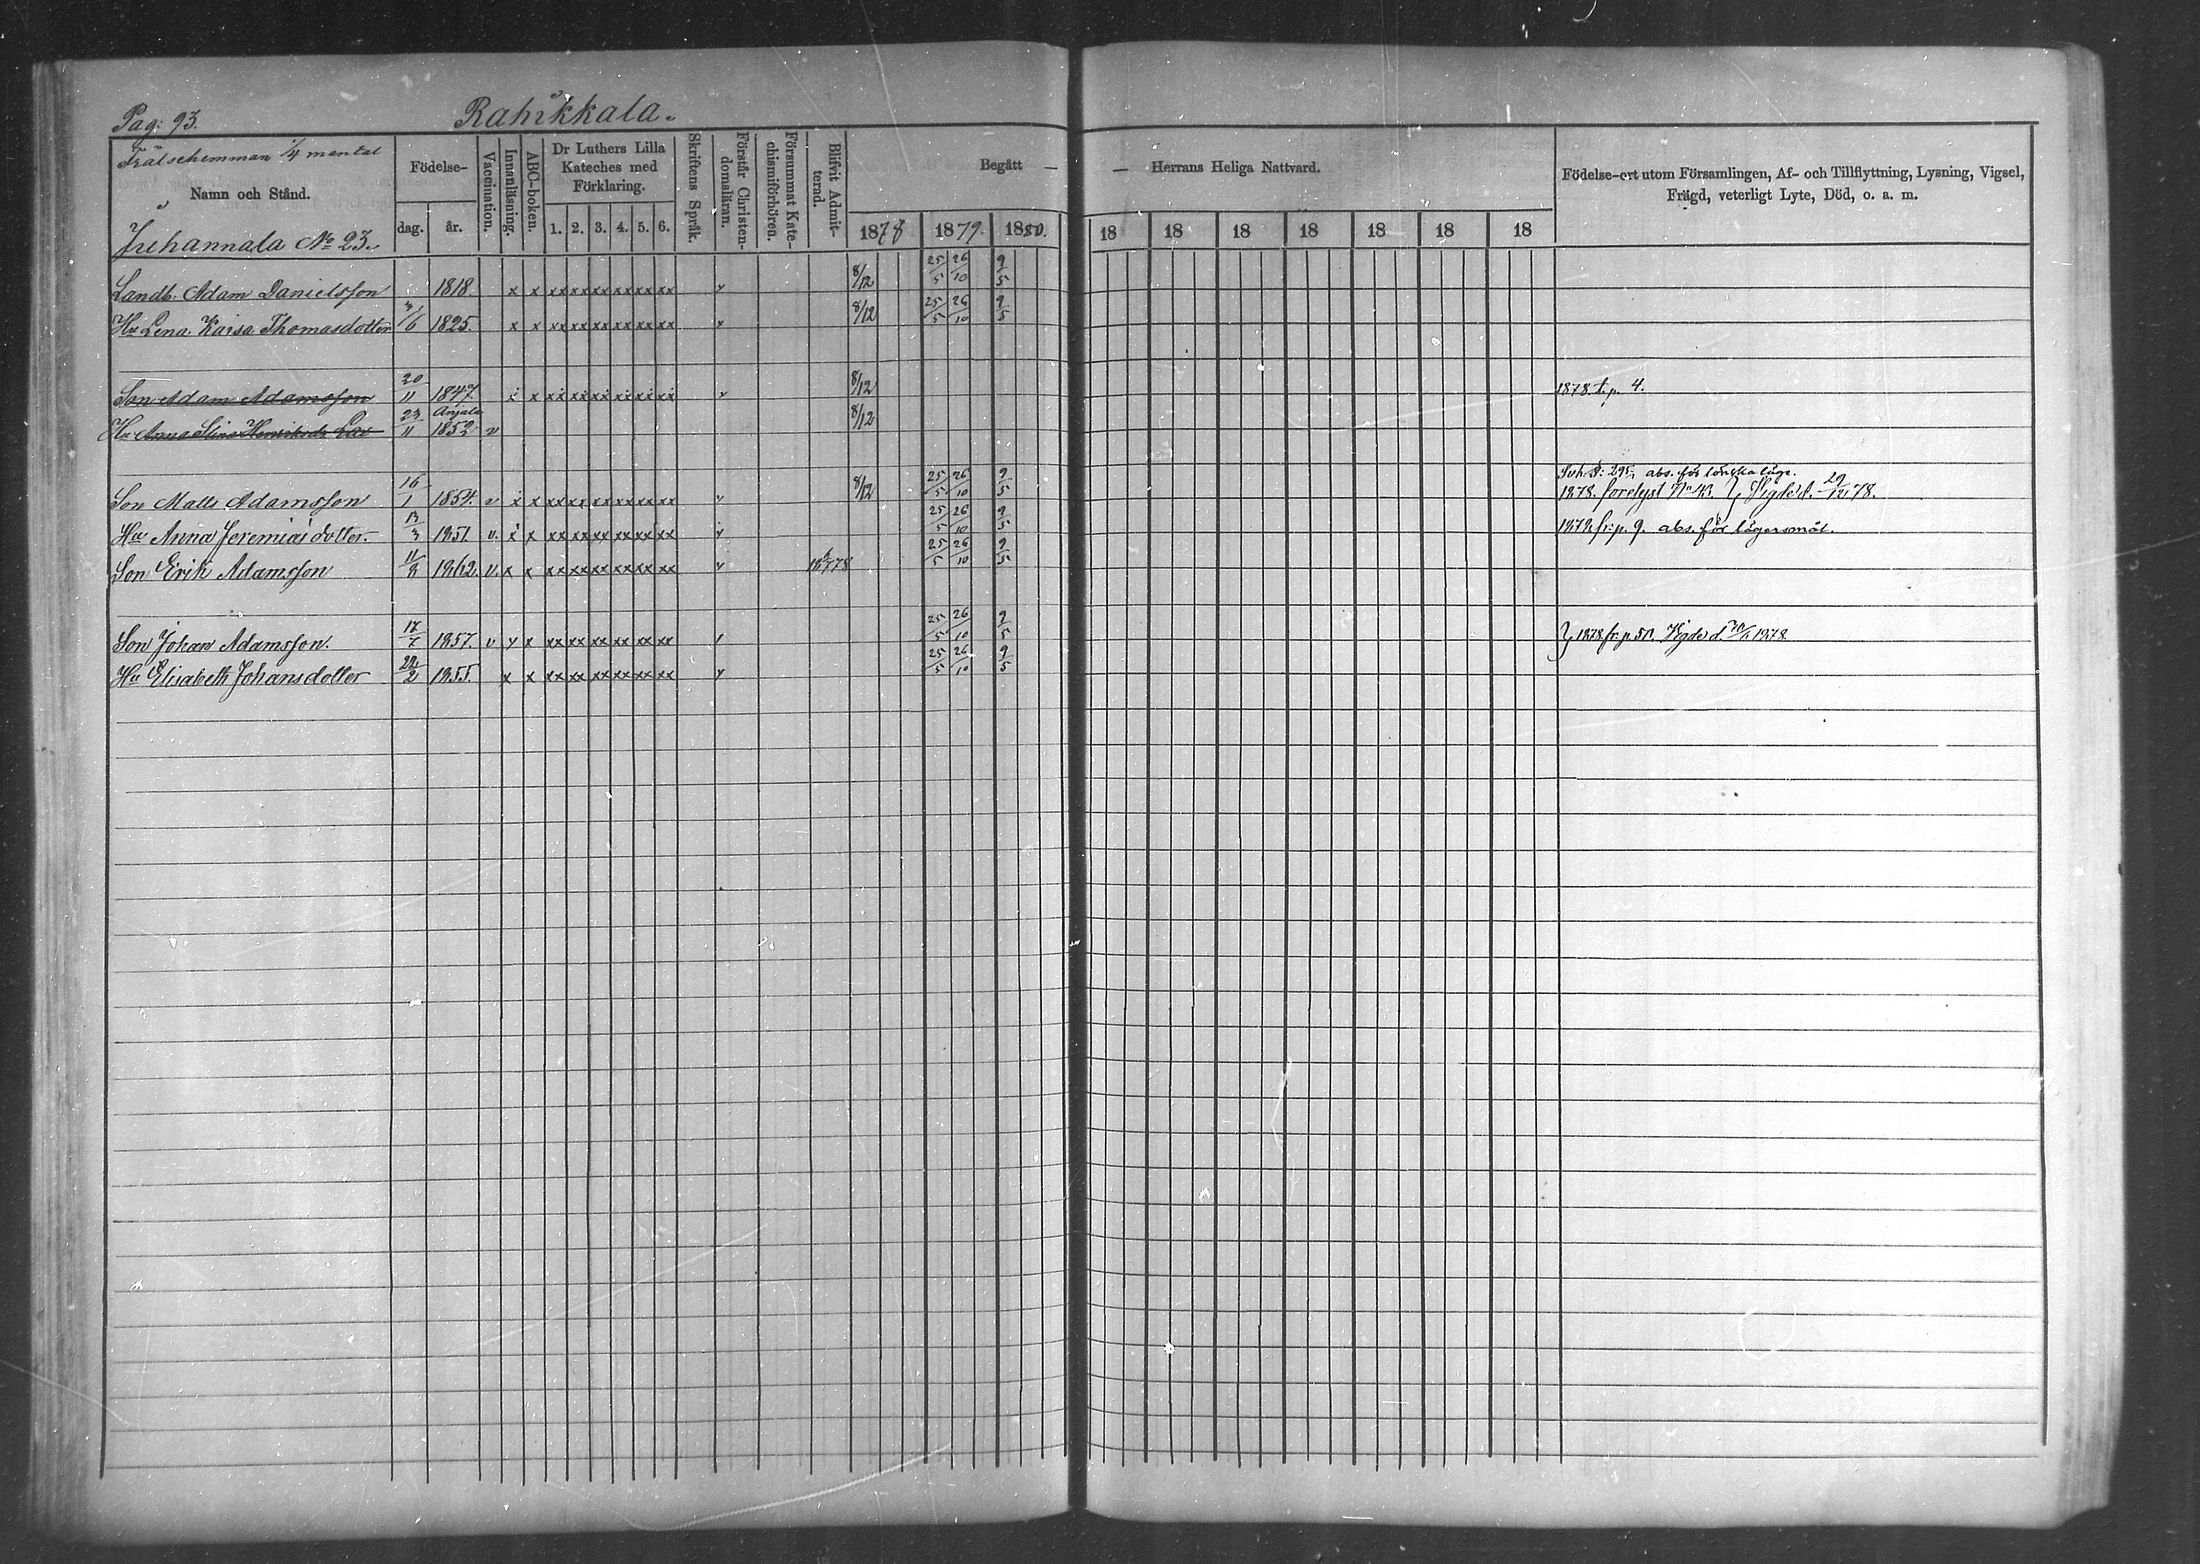 Pag: 93. Rahikkala.
Frälsehemman 1/4 mantal
Namn och Stånd.
Juhannala No 23.
Födelse-
dag. år.
Vaccination.
Innanläsning.
ABC-boken.
Dr Luthers Lilla
Kateches med
Förklaring.
1. 2. 3. 4. 5. 6.
Skriftens Språk.
Förstår Christen-
domsläran.
Försummat Kate-
chismiförhören.
Blifvit Admit-
terad.
Begått — — Herrans Heliga Nattvard.
1878 1879. 1880. 18 18 18 18 18 18 18
Födelse-ort utom Församlingen, Af- och Tillflyttning, Lysning, Vigsel,
Frägd, veterligt Lyte, Död, o. a. m.
Landb. Adam Danielsson 1818. x x xx xx xx xx xx xx 8/12 25/5 26/10 9/5
Hu Lena Kaisa Thomasdotter 1825. x x xx xx xx xx xx xx 8/12 25/5 26/10 9/5
Son Adam Adamsson 20/11 1847. 8/12 1878. t. p. 4.
Anjala
Hu Anna Stina Henriksdr 23/11 1852 v 8/12
Son Matts Adamsson 16/1 1854. v 8/12 25/5 26/10 9/5 1878. No 43. Vigde d. 29/12 78.
Hu Anna Jeremiasdotter. 13/3 1851. v. 25/5 26/10 9/5 fr. p. 9. abs. för lägersmål.
Son Erik Adamsson 11/8 1862. v. x x xx xx xx xx xx xx 25/5 26/10 9/5
Son Johan Adamsson. 17/7 1857. v 25/5 26/10 9/5 1878. fr. p. Vigde d. 1878.
Hu Elisabeth Johansdotter 22/2 1855. x x xx xx xx xx xx xx 25/5 26/10 9/5